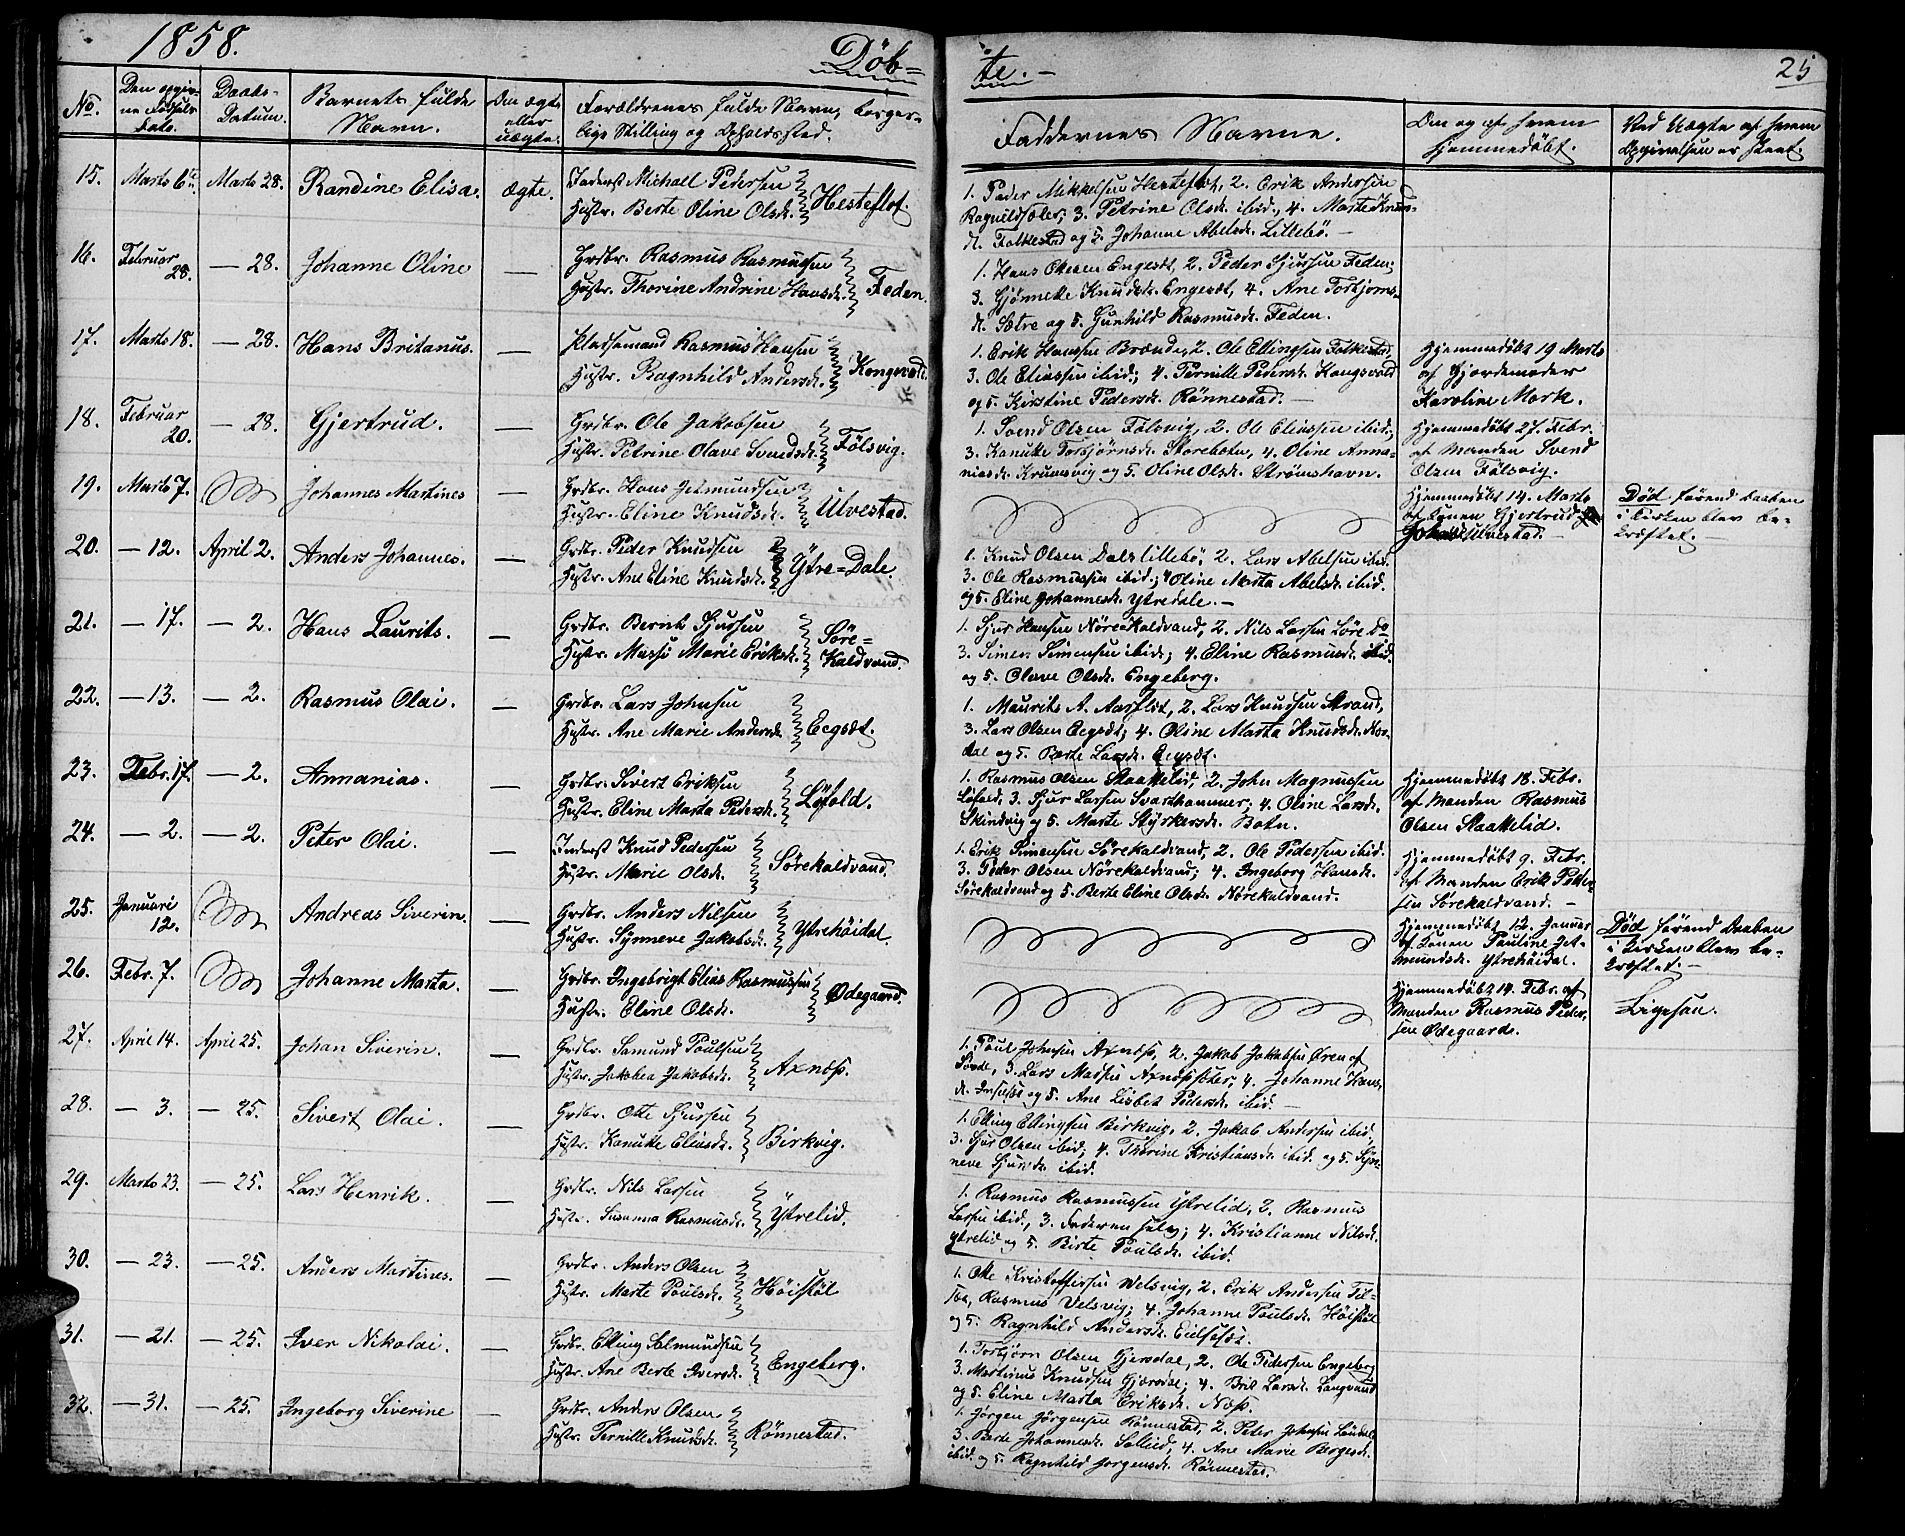 1858.
Døb=
te.-
25
No.
Den opgiv-
ne Fødsels
Dato.
Daabs-
Datum.
Barnets fulde
Navn.
Om ægte
eller
uægte.
Forældrenes fulde Navn, borger-
lige Stilling og Opholdssted.
Faddernes Navne.
Om og af hvem
hjemmedöbt.
Ved Uægte af hvem
Opgivelsen er skeet.
15. Marts 6te Marts 28. Randine Elisa. Ægte. Inderst Michall Pedersen
Hustr. Berte Oline Olsdr. Hesteflot.
1. Peder Mikkelsen Hesteflot, 2. Erik Andersen
3. Petrine Olsdr. ibid., 4. Marte Knuds-
dr. Folkestad og 5. Johanne Abelsdr. Lillebö. -
16. Februar 28. - 28. Johanne Oline - Grdbr. Rasmus Rasmussen
Hustr. Thorine Andrine Hansdr. Feden.
1. Hans Ottesen Engesæt, 2. Peder Sjursen Feden;
3. Gjönnette Knudsdr. Engesæt, 4. Ane Torbjørns-
dr. Sætre og 5. Gunhild Rasmusdr. Feden.
17. Marts 18. - 28. Hans Britanus. - Pladsemand Rasmus Hansen
Hustr. Ragnhild Andersdr. Kongsvold.
1. Erik Hansen Brændø, 2. Ole Ellingsen Folkestad,
3. Ole Eliassen ibid.; 4. Pernille Pedersdr. Kongsvold
og 5. Kirstine Pedersdr. Rönnestad. -
Hjemmedöbt 19 Marts
af Gjordemoder
Karoline Mork.
18. Februar 20. - 28. Gjertrud. - Grdbr. Ole Jakobsen
Hustr. Petrine Olave Svendsdr. Fölsvig.
1. Svend Olsen Fölsvig, 2. Ole Eliassen ibid.;
3. Kanutte Torbjörnsdr. Storebotn, 4. Oline Anna-
niasdr. Krumsvig og 5. Oline Olsdr. Strömshavn.
Hjemmedöbt 27. Febr.
af Manden Svend
Olsen Fölsvig.
19. Marts 7. Johannes Martines - Grdbr. Hans Jetmundsen
Hustr. Eline Knudsdr. Ulvestad.
Hjemmedöbt 14. Marts
af Konen Gjertrud
Ulvestad. -
Död förend Daaben
i Kirken blev be-
kræftet. -
20. - 12. April 2. Anders Johannes. - Grdbr. Peder Knudsen
Hustr. Ane Eline Knudsdr. Ytre=Dale.
1. Knud Olsen Dals Lillebö, 2. Lars Abelsen ibid.
3. Ole Rasmussen ibid.; 4 Oline Marta Abelsdr. ibid.
og 5. Eline Johannesdr. Ytredale. -
21. - 17. - 2. Hans Laurits. - Grdbr. Bernt Sjursen
Hustr. Massi Marie Eriksdr. Söre=
Kaldvand.
1. Sjur Hansen Nörekaldvand, 2. Nils Larsen Söre do
3. Simen Simensen ibid; 4. Eline Rasmusdr. ibid.
og 5. Olave Olsdr. Engeberg.
22. - 13. - 2. Rasmus Olai. - Grdbr. Lars Johnsen
Hustr. Ane Marie Andersdr. Eegsæt.
1. Maurits A. Aasflot, 2. Lars Knudsen Strand,
3. Lars Olsen Eegsæt; 4. Oline Marta Knudsdr. Nor-
dal og 5. Berte Larsdr. Eegsæt.
23. Febr. 17. - 2. Annanias. - Grdbr. Sivert Eriksen
Hustr. Eline Marta Pedersdr. Löfold.
1. Rasmus Olsen Slaattelid, 2. John Magnussen
Löfold, 3. Sjur Larsen Svarthammer; 4. Oline Larsdr.
Skindvig og 5. Marte Styrkersdr. Botn.
Hjemmedöbt 18. Febr.
af Manden Rasmus
Olsen Slaattelid.
24. - 2. - 2. Peter Olai. - Inderst Knud Pedersen
Hustr. Marie Olsdr. Sörekaldvand.
1. Erik Simensen Sörekaldvand, 2. Ole Pedersen ibid.
3. Peder Olsen Nörekaldvand; 4. Ingeborg Hansdr.
Sörekaldvand og 5. Berte Eline Olsdr. Nörekaldvand.
Hjemmedöbt 9. Febr.
af Manden Erik Peder-
sen Sörekaldvand. -
25. Januari 12. Andreas Siverin. - Grdbr. Anders Nilsen
Hustr. Synneve Jakobsdr. Ytrehöidal.
Hjemmedöbt 12. Januar
af Konen Pauline Jet-
mundsdr. Ytrehöidal.
Död förend Daaben
i Kirken blev be-
kræftet. -
26. Febr. 7. Johanne Marta. - Grdbr. Ingebrigt Elias Rasmussen
Hustr. Eline Olsdr. Ödegaard.
Hjemmedöbt 14. Febr. af
Manden Rasmus Peder-
sen Ödegaard.
Ligesaa.
27. April 14. April 25. Johan Siverin. - Grdbr. Samund Poulsen
Hustr. Jakobea Jakobsdr. Axnæs.
1. Poul Johnsen Axnæs, 2. Jakob Jakobsen Øren af
3. Lars Madsen Axnæssæter; 4. Johanne Hans-
dr. og 5. Ane Lisbet Pedersdr. ibid. -
28. - 3. - 25. Sivert Olai. - Grdbr. Otte Sjursen
Hustr. Kanutte Eliasdr. Birkvig.
1. Elling Ellingsen Birkvig, 2. Jakob Andersen ibid,
3. Sjur Olsen ibid; 4. Thorine Kristiansdr. ibid. og 5. Syn-
neve Sjursdr. ibid.
29. Marts 23. - 25. Lars Henrik. - Grdbr. Nils Larsen
Hustr. Susanna Rasmusdr. Ytrelid.
1. Rasmus Rasmussen Ytrelid, 2. Rasmus
Larsen ibid, 3. Faderen selv; 4. Kristianne Nilsdr.
Ytrelid og 5. Birte Poulsdr. ibid.
30. - 23. - 25. Anders Martines. - Grdbr. Anders Olsen
Hustr. Marte Poulsdr. Höistöl
1. Otte Kristoffersen Velsvig, 2. Erik Andersen
Rasmus Velsvig; 4. Johanne Poulsdr. Höistöl
og 5. Ragnhild Andersdr.
31. - 21. - 25. Iver Nikolai. - Grdbr. Elling Salmundsen
Hustr. Ane Berte Iversdr. Engeberg.
1. Torbjörn Olsen Gjersdal, 2. Ole Pedersen Engeberg
3. Martinus Knudsen Gjersdal; 4. Brit Larsdr. Langvand
og 5. Eline Marta Eriksdr. Næss.
32. - 31. - 25. Ingeborg Siverine - Grdbr. Anders Olsen
Hustr. Pernille Knudsdr. Rönnestad.
1. Jörgen Jörgensen Rönnestad, 2. Peter Johnsen
3. Berte Johannesdr. 4. Ane Marie
ibid. og 5. Ragnhild Jorgensdr. Rönnestad.